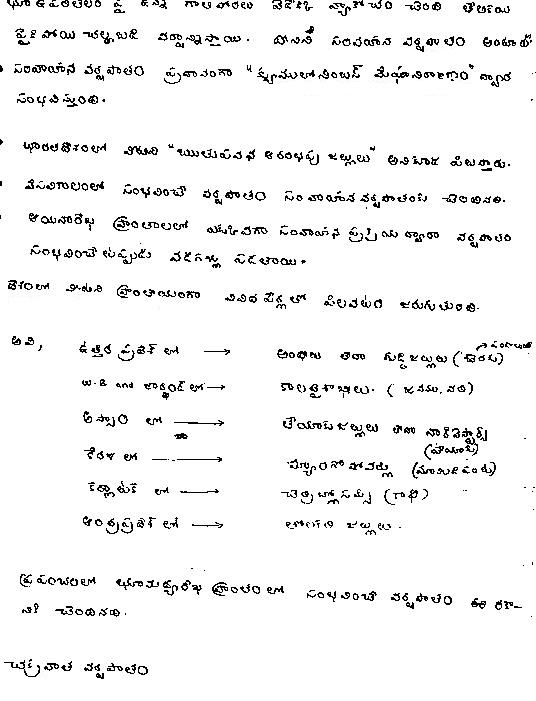 భూ ఉపరితలం పై ఉన్న గాలి పొరలు వేడెక్కి వ్యాకోచం చెంది తేలికయి
పైకి పోయి చల్లబడి వర్షాన్నిస్తాయి. దీనినే సంవాహన వర్షపాతం అంటారు
సంవాహన వర్షపాతం ప్రధానంగా "క్యుములోనింబస్ మేఘావరణం" ద్వారా
సంభవిస్తుంది.
భారతదేశంలో వీటిని "ఋతుపవన ఆరంభపు జల్లులు" అనికూడ పిలుస్తారు.
వేసవికాలంలో సంభవించే వర్షపాతం సంవాహన వర్షపాతంకు చెందినది.
ఆయనరేఖా ప్రాంతాలలో సంవాహన ప్రక్రియ ద్వారా వర్షపాతం
సంభవించేటప్పుడు వడగళ్ళు పడతాయి.
దేశంలో వీటిని ప్రాంతీయంగా వివిధ పేర్లతో పిలవటం జరుగుతుంది.
అవి,
ఉత్తర ప్రదేశ్ లో → అంధీలు లేదా గుడ్డి జల్లులు (చెరకు)
W.B and జార్ఖండ్ లో → కాలబైశాఖీలు. (జనుము, వరి)
అస్సాం లో → టీయాపు జల్లులు లేదా నార్వెస్టర్స్
కేరళ లో → మ్యాంగో షోవర్లు (మామిడి పండు)
కర్ణాటక లో → చెర్రీ బ్లోసమ్స్ (కాఫీ)
ఆంధ్రప్రదేశ్ లో → తొలకరి జల్లులు.
ప్రపంచంలో భూమధ్యరేఖా ప్రాంతంలో సంభవించే వర్షపాతం ఈ రకా-
నికి చెందినది.
చక్రవాత వర్షపాతం